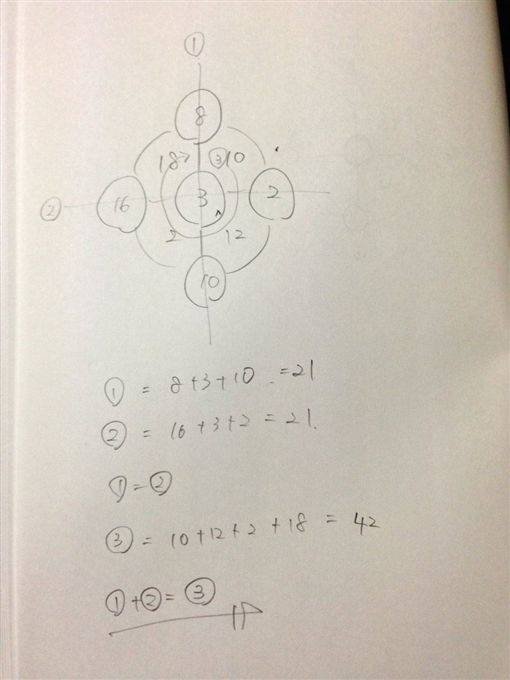 ①
8
18 ③ 10
② 16 3 2
2 12
10
① = 8+3+10 = 21
② = 16+3+2 = 21.
① = ②
③ = 10+12+2+18 = 42
①+② = ③